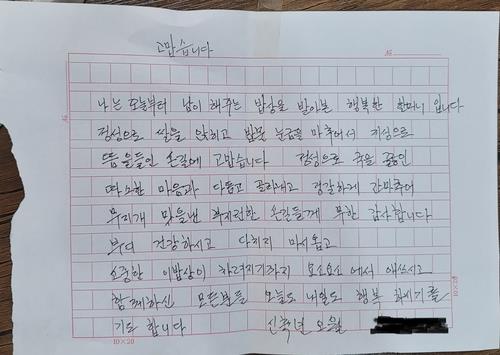 고맙습니다
나는 오늘부터 남이 해주는 밥상을 받아본 행복한 할머니 입니다
정성으로 쌀을 앉히고 밥물 눈금을 마추어서 지성으로
뜸을들인 손길에 고맙습니다 정성으로 죽을
따스한 마음과 다듬고 골라내고 정갈하게 간마추어
무지개 맛을낸 부지런한 손길들께 무한 감사합니다
부디 건강하시고 다치지 마시옵고
소중한 이밥상이 차려지기까지 요소요소에서 애쓰시고
함께하신 모든분들 오늘도 내일도 행복 하시기를
기도 합니다 신축년 오월
10×20
10×20